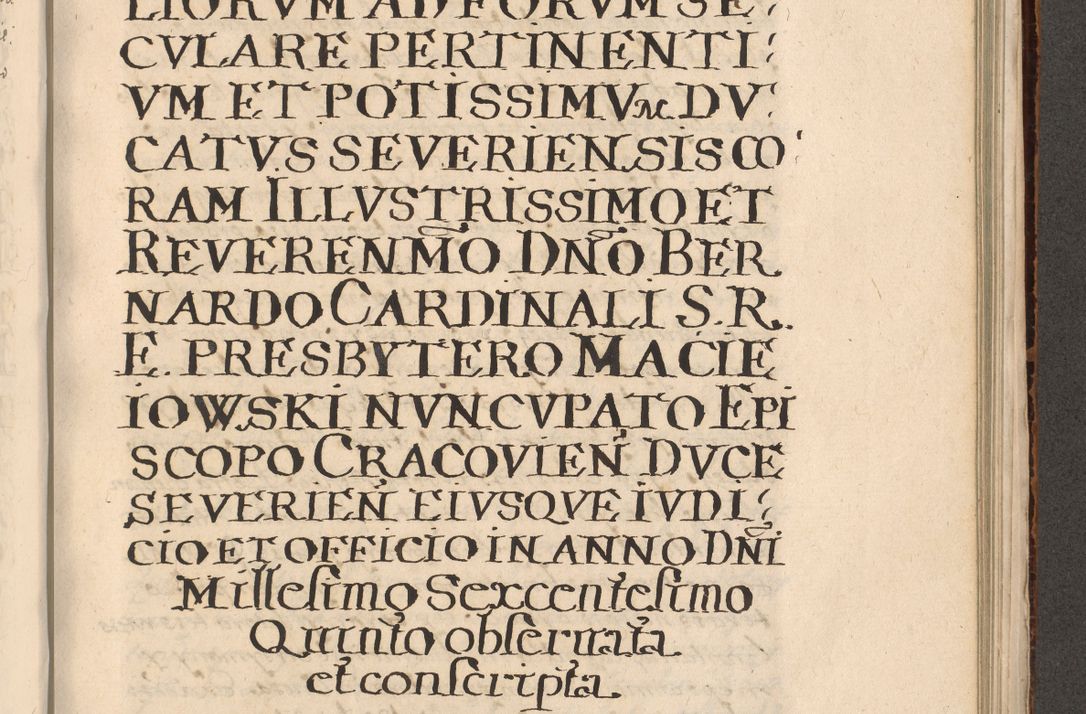 LIORVM AD FORVM SE:
CVLARE PERTINENTI:
VM ET POTISSIMVM DV:
CATVS SEVERIENSIS CO:
RAM ILLVSTRISSIMO ET
REVERENMO DNO BER
NARDO CARDINALI S. R.
E. PRESBYTERO MACIE
IOWSKI NVNCVPATO EPI
SCOPO CRACOVIEN DVCE
SEVERIEN EIVSQVE IVDI:
CIO ET OFFICIO IN ANNO DNI
Millesimo Sexcentesimo
Quinto obseruata
et conscripta.